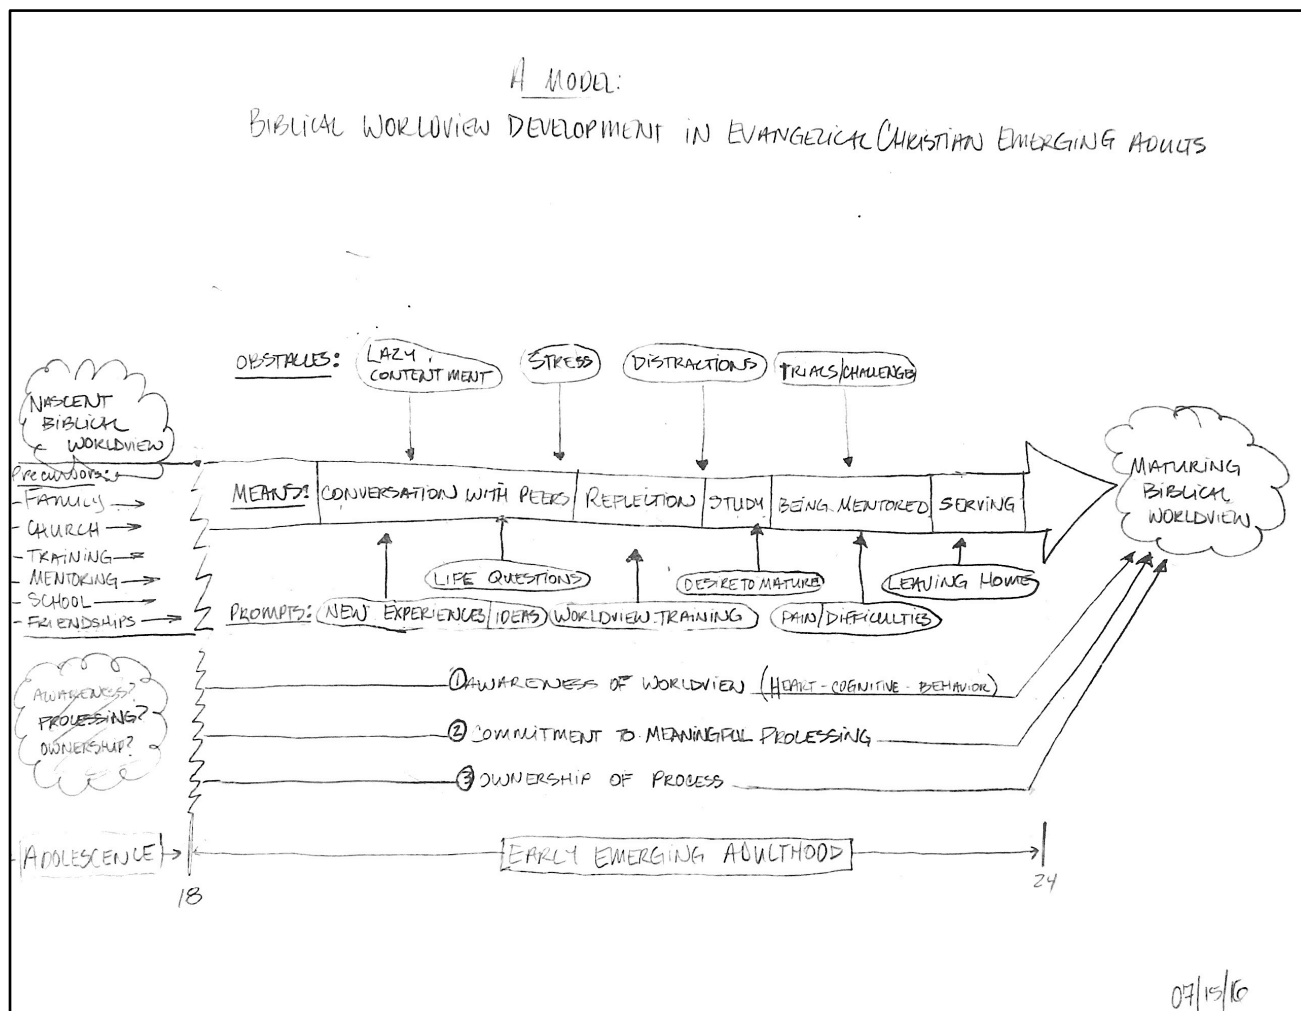 A MODEL:
BIBLICAL WORLDVIEW DEVELOPMENT IN EVANGELICAL CHRISTIAN EMERGING ADULTS
OBSTACLES:
LAZY
CONTENTMENT
STRESS
DISTRACTIONS
TRIALS/CHALLENGE
NASCENT
BIBLICAL
WORLDVIEW
Precursors:
- FAMILY
- CHURCH
- TRAINING
- MENTORING
- SCHOOL
- FRIENDSHIPS
MEANS: CONVERSATION WITH PEERS REFLECTION STUDY BEING MENTORED SERVING
MATURING
BIBLICAL
WORLDVIEW
LIFE QUESTIONS
DESIRE TO MATURE
LEAVING HOME
PROMPTS: NEW EXPERIENCES/IDEAS WORLDVIEW TRAINING PAIN/DIFFICULTIES
AWARENESS?
PROCESSING?
OWNERSHIP?
① AWARENESS OF WORLDVIEW (HEART - COGNITIVE - BEHAVIOR)
② COMMITMENT TO MEANINGFUL PROCESSING
③ OWNERSHIP OF PROCESS
ADOLESCENCE
EARLY EMERGING ADULTHOOD
18
24
07/15/16